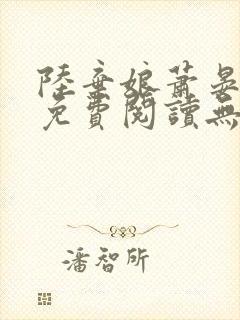 陸棄娘蕭晏
免費閱讀無
潘智所